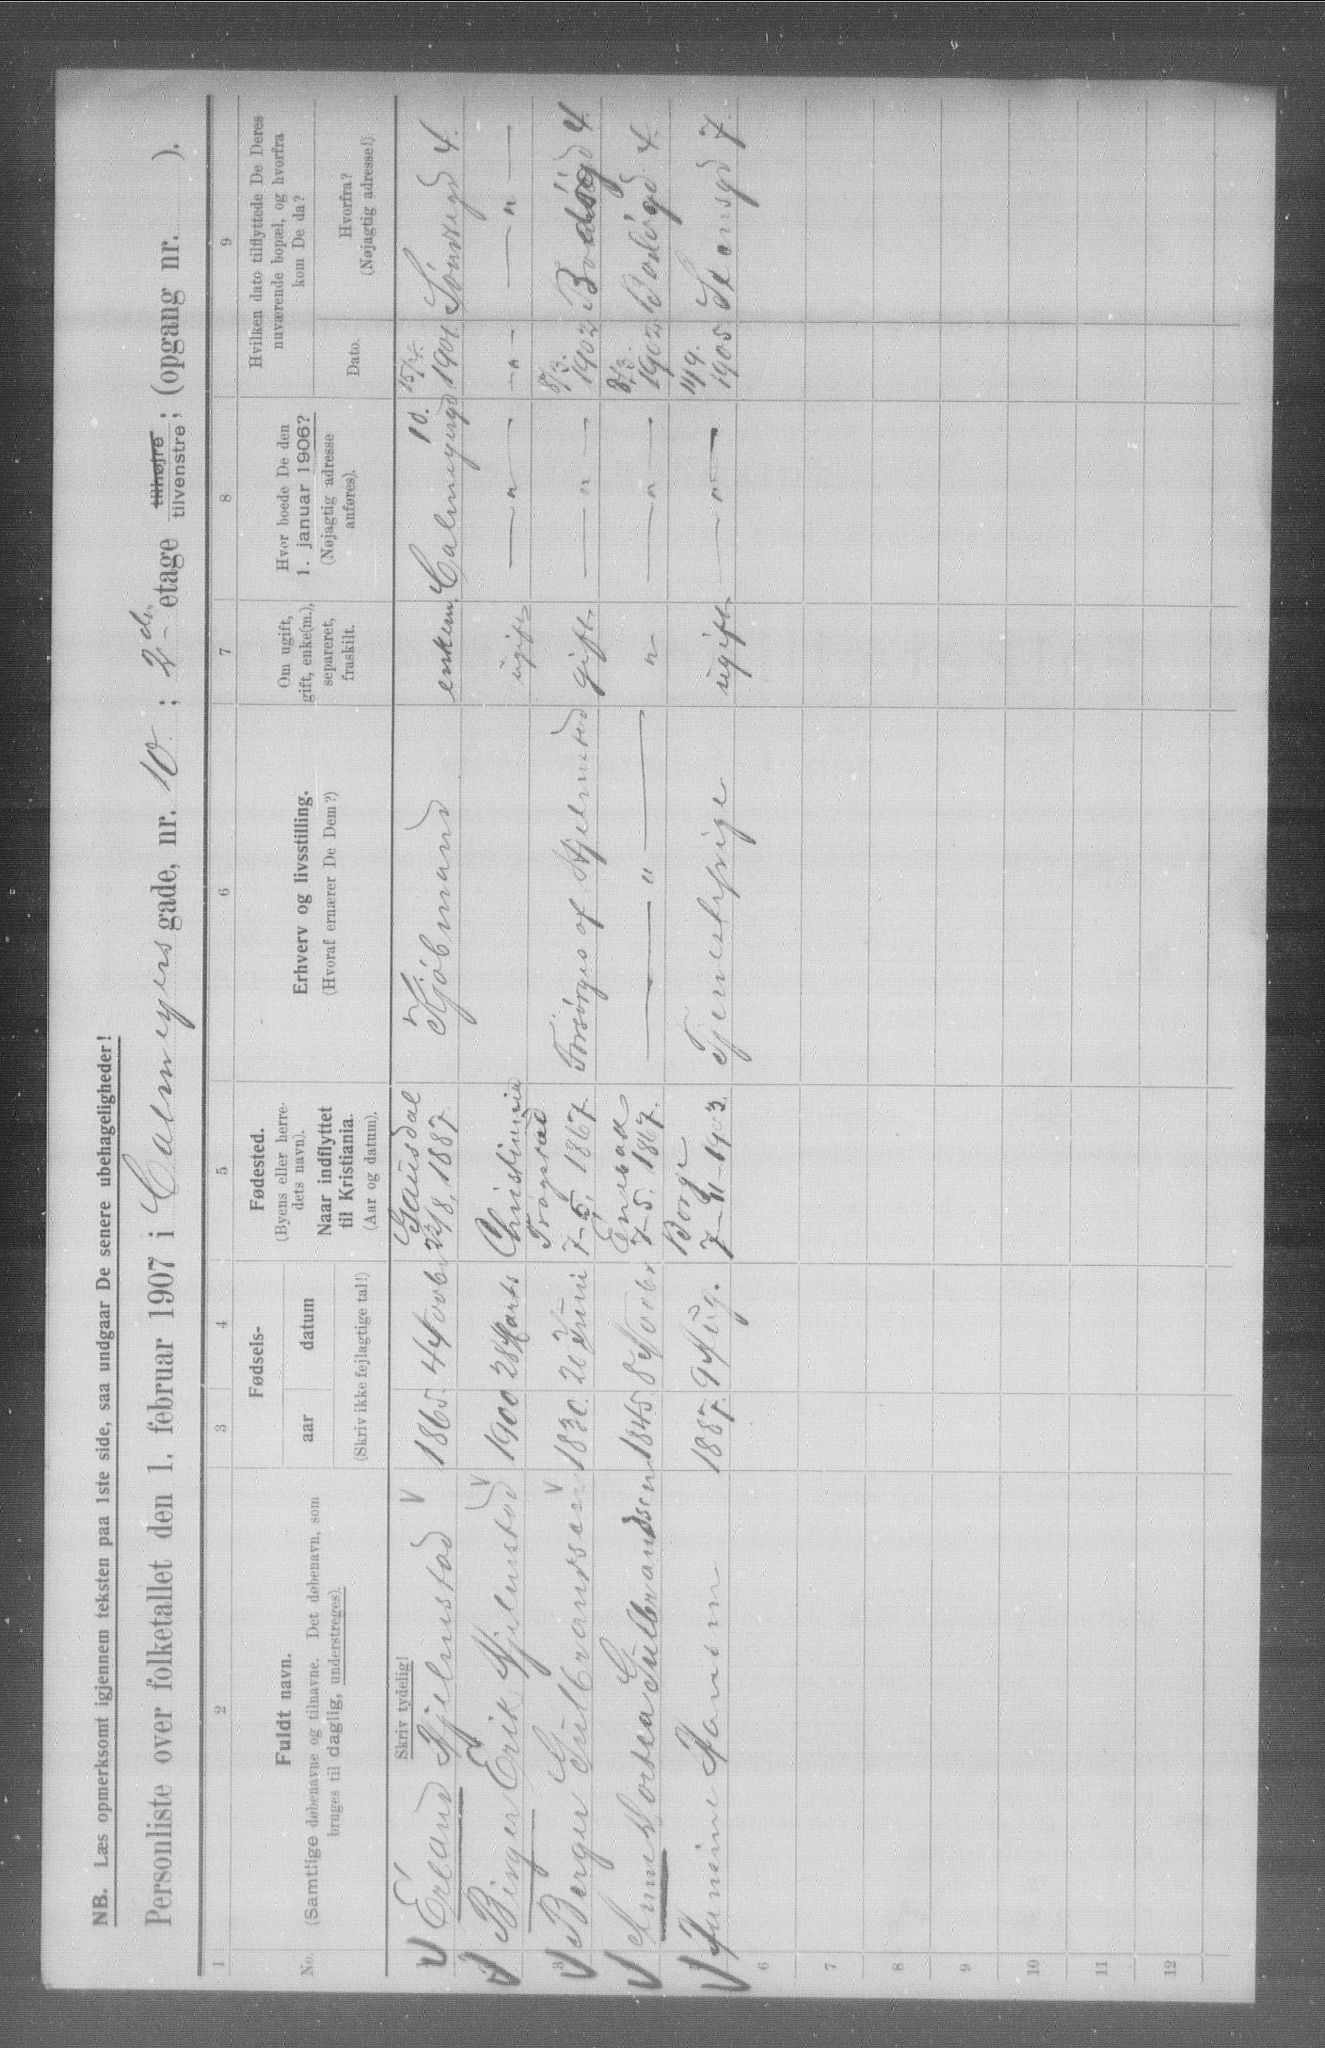 NB. Læs opmerksomt igjennem teksten paa 1ste side, saa undgaar De senere ubehageligheder!
Personliste over folketallet den 1. februar 1907 i Calmeyersgade, nr. 10; 2den etage tilhøjre tilvenstre; (opgang nr. ).
1 2 3 4 5 6 7 8 9
No.
Fuldt navn.
(Samtlige døbenavne og tilnavne. Det døbenavn, som
bruges til daglig, understreges).
Fødsels-
aar datum
(Skriv ikke fejlagtige tal!)
Fødested.
(Byens eller herre-
dets navn).
Naar indflyttet
til Kristiania.
(Aar og datum).
Erhverv og livsstilling.
(Hvoraf ernærer De Dem?)
Om ugift,
gift, enke(m.),
separeret,
fraskilt.
Hvor boede De den
1. januar 1906?
(Nøjagtig adresse
anføres).
Hvilken dato tilflyttede De Deres
nuværende bopæl, og hvorfra
kom De da?
Dato.
Hvorfra?
(Nøjagtig adresse!)
Skriv tydelig!
Erland Hjelmstad 1865 4 Novbr Gausdal 22/8. 1887. Kjøbmand enkem. Calmeyergd 10. 15/4. 1901. 4.
Birger Erik Hjelmstad 1900 28 Marts Christiania ugift — " — — " — — " —
3 Berger Gulbrandsen 1830. 20 Juni Trøgstad 7-5. 1867. Forsørges af Hjelmstad gift — " — 8/3. 1902 4.
Anne Dorthea Gulbrandsen 1845 8 Novbr. Enebak 7-5. 1867. — " — " — " — 8/3. 1902 4.
Janine Hansen 1887. 9 Aug. Borge 7-11-1903. Tjenestepige ugift — " — 14/9. 1905 7.
6
7
8
9
10
11
12